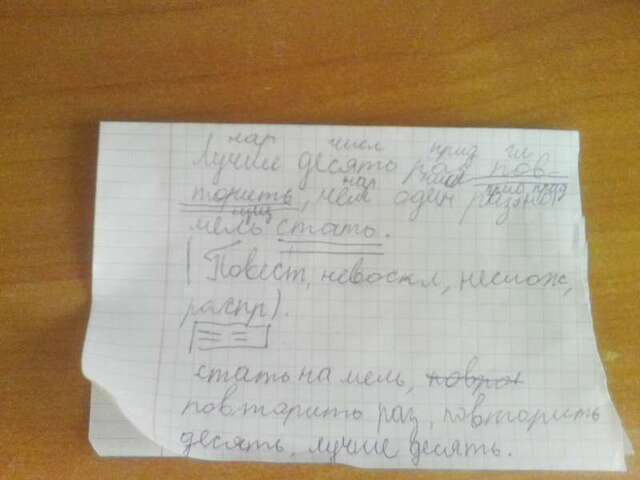 нар числ прил гл
Лучше десять раз пов
торить, чем один раз на
мель стать.
(Повест, невоскл, неслож,
распр).
стать на мель,
повторить раз, повторить
десять, лучше десять.